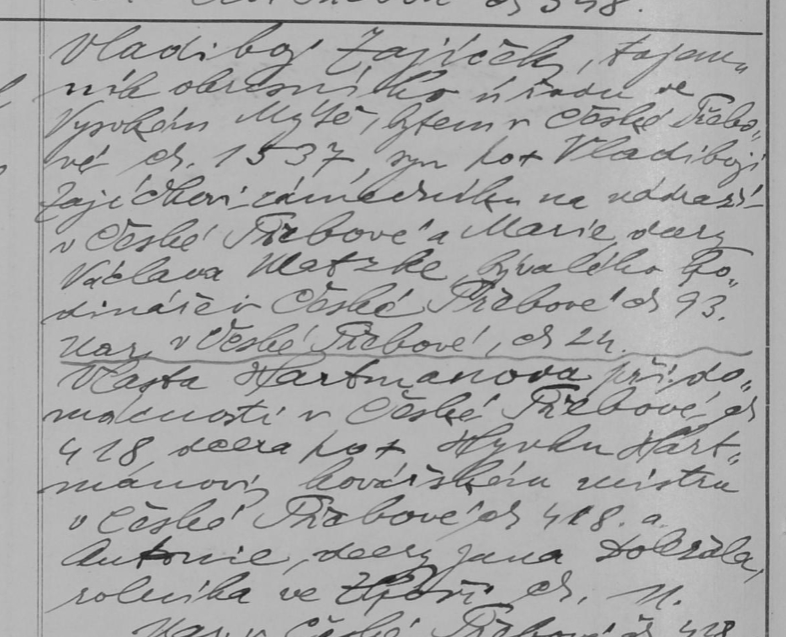 čp 548.
Vladiboj Zajíček, tajem„
ník okresního úřadu ve
Vysokém Mýtě, bytem v České Třebo„
vé čp. 1537, syn pot Vladiboji
Zajíčkovi zámečníku na nádraží
v České Třebové a Marie, dcery
Václava Matzke, bývalého ho„
dináře v České Třebové čp 93.
Nar. v České Třebové, čp 24.
Vlasta Hartmanova při do„
mácnosti v České Třebové, čp
418 dcera pot Hynku Hart„
mánovi, kovářském mistru
v České Třebové čp 418. a
Antonie, dcery Jana Dobrála,
rolníka ve Zhoři čp. 11.
Nar. v České Třebové č 418